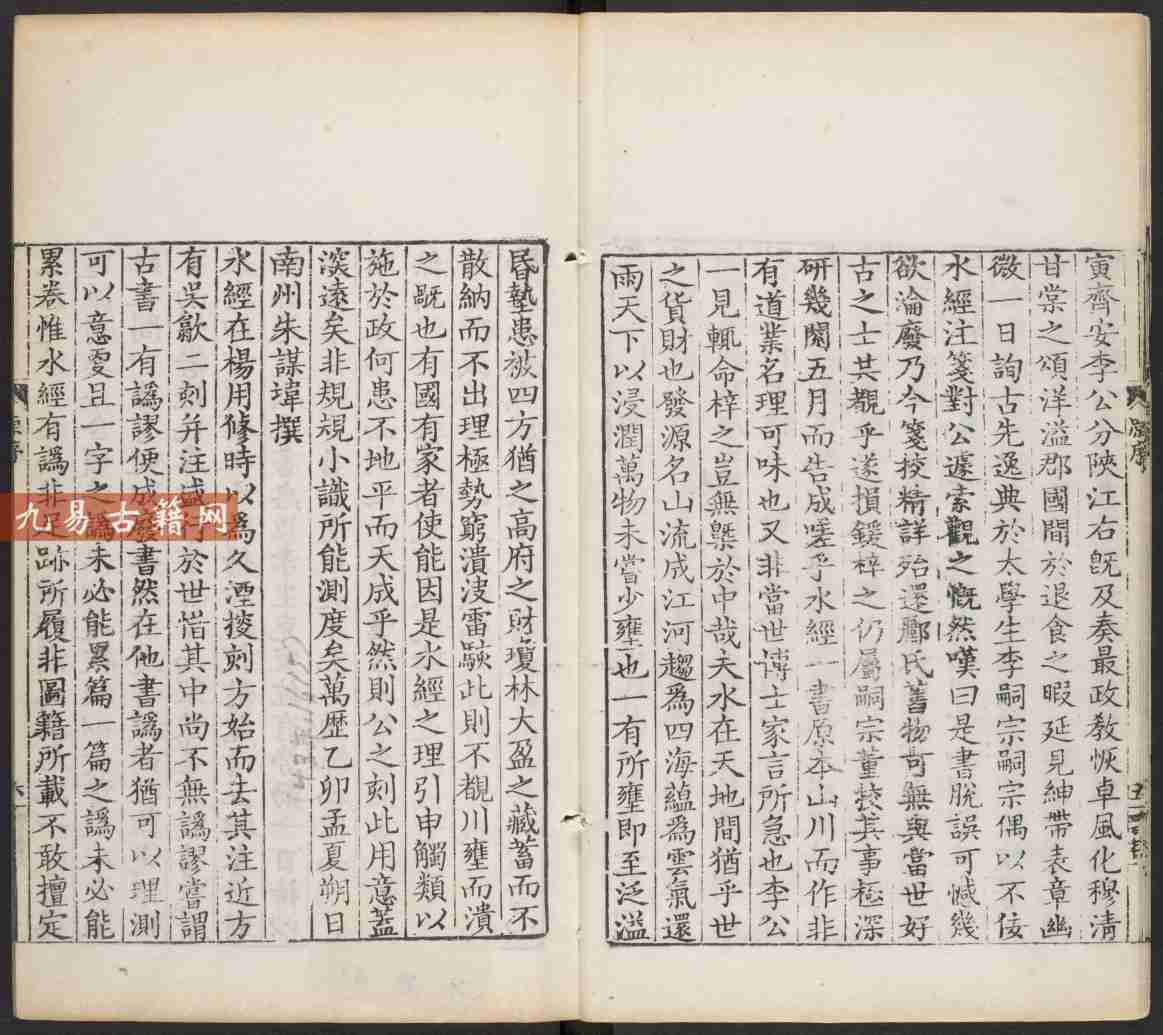 寅齊安李公分陝江右旣及奏最政敎恢卓風化穆淸
甘棠之頌洋溢郡國間於退食之暇延見紳帶表章幽
微一日詢古先逸典於太學生李嗣宗嗣宗偶以不佞
水經注箋對公遽索觀之慨然嘆曰是書脫誤可憾幾
欲淪廢乃今箋挍精詳殆還酈氏舊物可無與當世好
古之士共覩乎遂損鍰梓之仍屬嗣宗董挍其事極深
研幾閱五月而告成嗟乎水經一書原本山川而作非
有道業名理可味也又非當世博士家言所急也李公
一見輒命梓之豈無槩於中哉夫水在天地間猶乎世
之貨財也發源名山流成江河趨爲四海蘊爲雲氣還
雨天下以浸潤萬物未嘗少壅也一有所壅即至泛溢
昬墊患被四方猶之高府之財瓊林大盈之藏蓄而不
散納而不出理極勢窮潰洩雷駭此則不覩川壅而潰
之戤也有國有家者使能因是水經之理引申觸類以
施於政何患不地平而天成乎然則公之刻此用意蓋
深遠矣非規規小識所能測度矣萬歷乙卯孟夏朔日
南州朱謀㙔撰
水經在楊用修時以爲久湮挍刻方始而去其注近方
有吳歙二刻并注盛行於世惜其中尚不無譌謬嘗謂
古書一有譌謬便成廢書然在他書譌者猶可以理測
可以意㪅且一字之譌未必能累篇一篇之譌未必能
累卷惟水經有譌非足跡所履非圖籍所載不敢擅定
九易古籍网